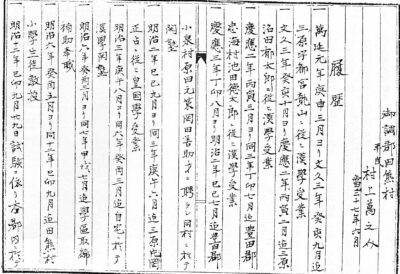 御調郡田熊村
平民
村上萬之介
當三十七年六月
履歴
萬延元年庚申三月ヨリ文久三年癸亥九月迠
三原宇都宮龍山ニ従ヒ漢學受業
文久三年癸亥十月ヨリ慶應二年丙寅二月迠三原
沼田郁太郎ニ従ヒ漢學受業
慶應二年丙寅三月ヨリ同三年丁卯七月迠豊田郡
忠海村池田德太郎ニ従ヒ漢學受業
慶應三年丁卯八月ヨリ明治二年己巳七月迠豊田郡
小泉村原田元策岡田吾助ノ聘ニ同村ニ於テ
開塾
明治二年己巳九月ヨリ同三年庚午六月迠三原
正吉ニ従ヒ皇國學受業
明治三年庚午八月ヨリ同六年癸酉三月迠自宅ニ於テ
漢學開塾
明治六年癸酉三月ヨリ同七年甲戌七月迠學區取締
補助奉職
明治六年癸酉五月ヨリ同十二年己卯九月迠田熊村
小學生徒教授
明治十二年己卯九月十九日試驗ニ依リ本郡内ニ於テ